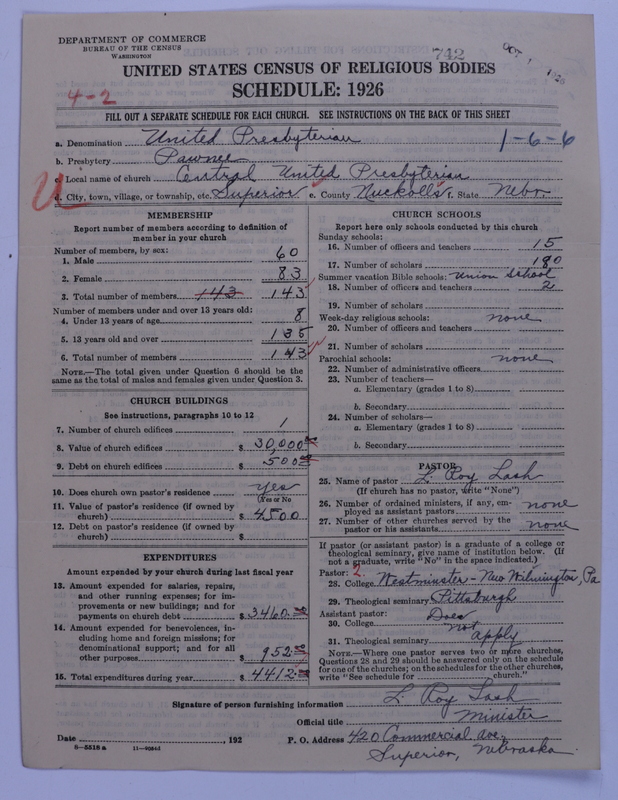 DEPARTMENT OF COMMERCE
BUREAU OF THE CENSUS
WASHINGTON
742
OCT 1926
UNITED STATES CENSUS OF RELIGIOUS BODIES
SCHEDULE: 1926
4-2
FILL OUT A SEPARATE SCHEDULE FOR EACH CHURCH. SEE INSTRUCTIONS ON THE BACK OF THIS SHEET
a. Denomination United Presbyterian 1-6-6
b. Presbytery Pawnee
c. Local name of church Central United Presbyterian
U
d. City, town, village, or township, etc. Superior e. County Nuckolls f. State Nebr.
MEMBERSHIP
Report number of members according to definition of
member in your church
Number of members, by sex:
1. Male 60
2. Female 83
3. Total number of members 143 143
Number of members under and over 13 years old:
4. Under 13 years of age 8
5. 13 years old and over 135
6. Total number of members 143
NOTE.—The total given under Question 6 should be
same as the total of males and females given under Question 3.
CHURCH BUILDINGS
See instructions, paragraphs 10 to 12
7. Number of church edifices 1
8. Value of church edifices $ 30,000
9. Debt on church edifices $ 500
10. Does church own pastor's residence yes
(Yes or No
11. Value of pastor's residence (if owned by
church) $ 4500
12. Debt on pastor's residence (if owned by
church) $
EXPENDITURES
Amount expended by your church during last fiscal year
13. Amount expended for salaries, repairs,
and other running expenses; for im-
provements or new buildings; and for
payments on church debt $ 3460.00
14. Amount expended for benevolences, in-
cluding home and foreign missions; for
denominational support; and for all
other purposes $ 952.00
15. Total expenditures during year $ 4412.00
CHURCH SCHOOLS
Report here only schools conducted by this church
Sunday schools:
16. Number of officers and teachers 15
17. Number of scholars 180
Summer vacation Bible schools: Union School
18. Number of officers and teachers 2
19. Number of scholars
Week-day religious schools: none
20. Number of officers and teachers
21. Number of scholars
Parochial schools: none
22. Number of administrative officers
23. Number of teachers—
a. Elementary (grades 1 to 8)
b. Secondary
24. Number of scholars—
a. Elementary (grades 1 to 8)
b. Secondary
PASTOR
25. Name of pastor L. Roy Lash
(If church has no pastor, write "None")
26. Number of ordained ministers, if any, em-
ployed as assistant pastors none
27. Number of other churches served by the
pastor or his assistants none
If pastor (or assistant pastor) is a graduate of a college or
theological seminary, give name of institution below. (If
not a graduate, write "No" in the space indicated.)
Pastor: 2
28. College Westminster - New Wilmington, Pa
29. Theological seminary Pittsburgh
Assistant pastor: Does
30. College not
31. Theological seminary apply
NOTE.—Where one pastor serves two or more churches,
Questions 28 and 29 should be answered only on the schedule
for one of the churches; on the schedules for the other churches,
write "See schedule for church."
Signature of person furnishing information L. Roy Lash
Official title Minister
Date , 192 P. O. Address 420 Commercial ave.,
8-5518 a Superior, Nebraska.